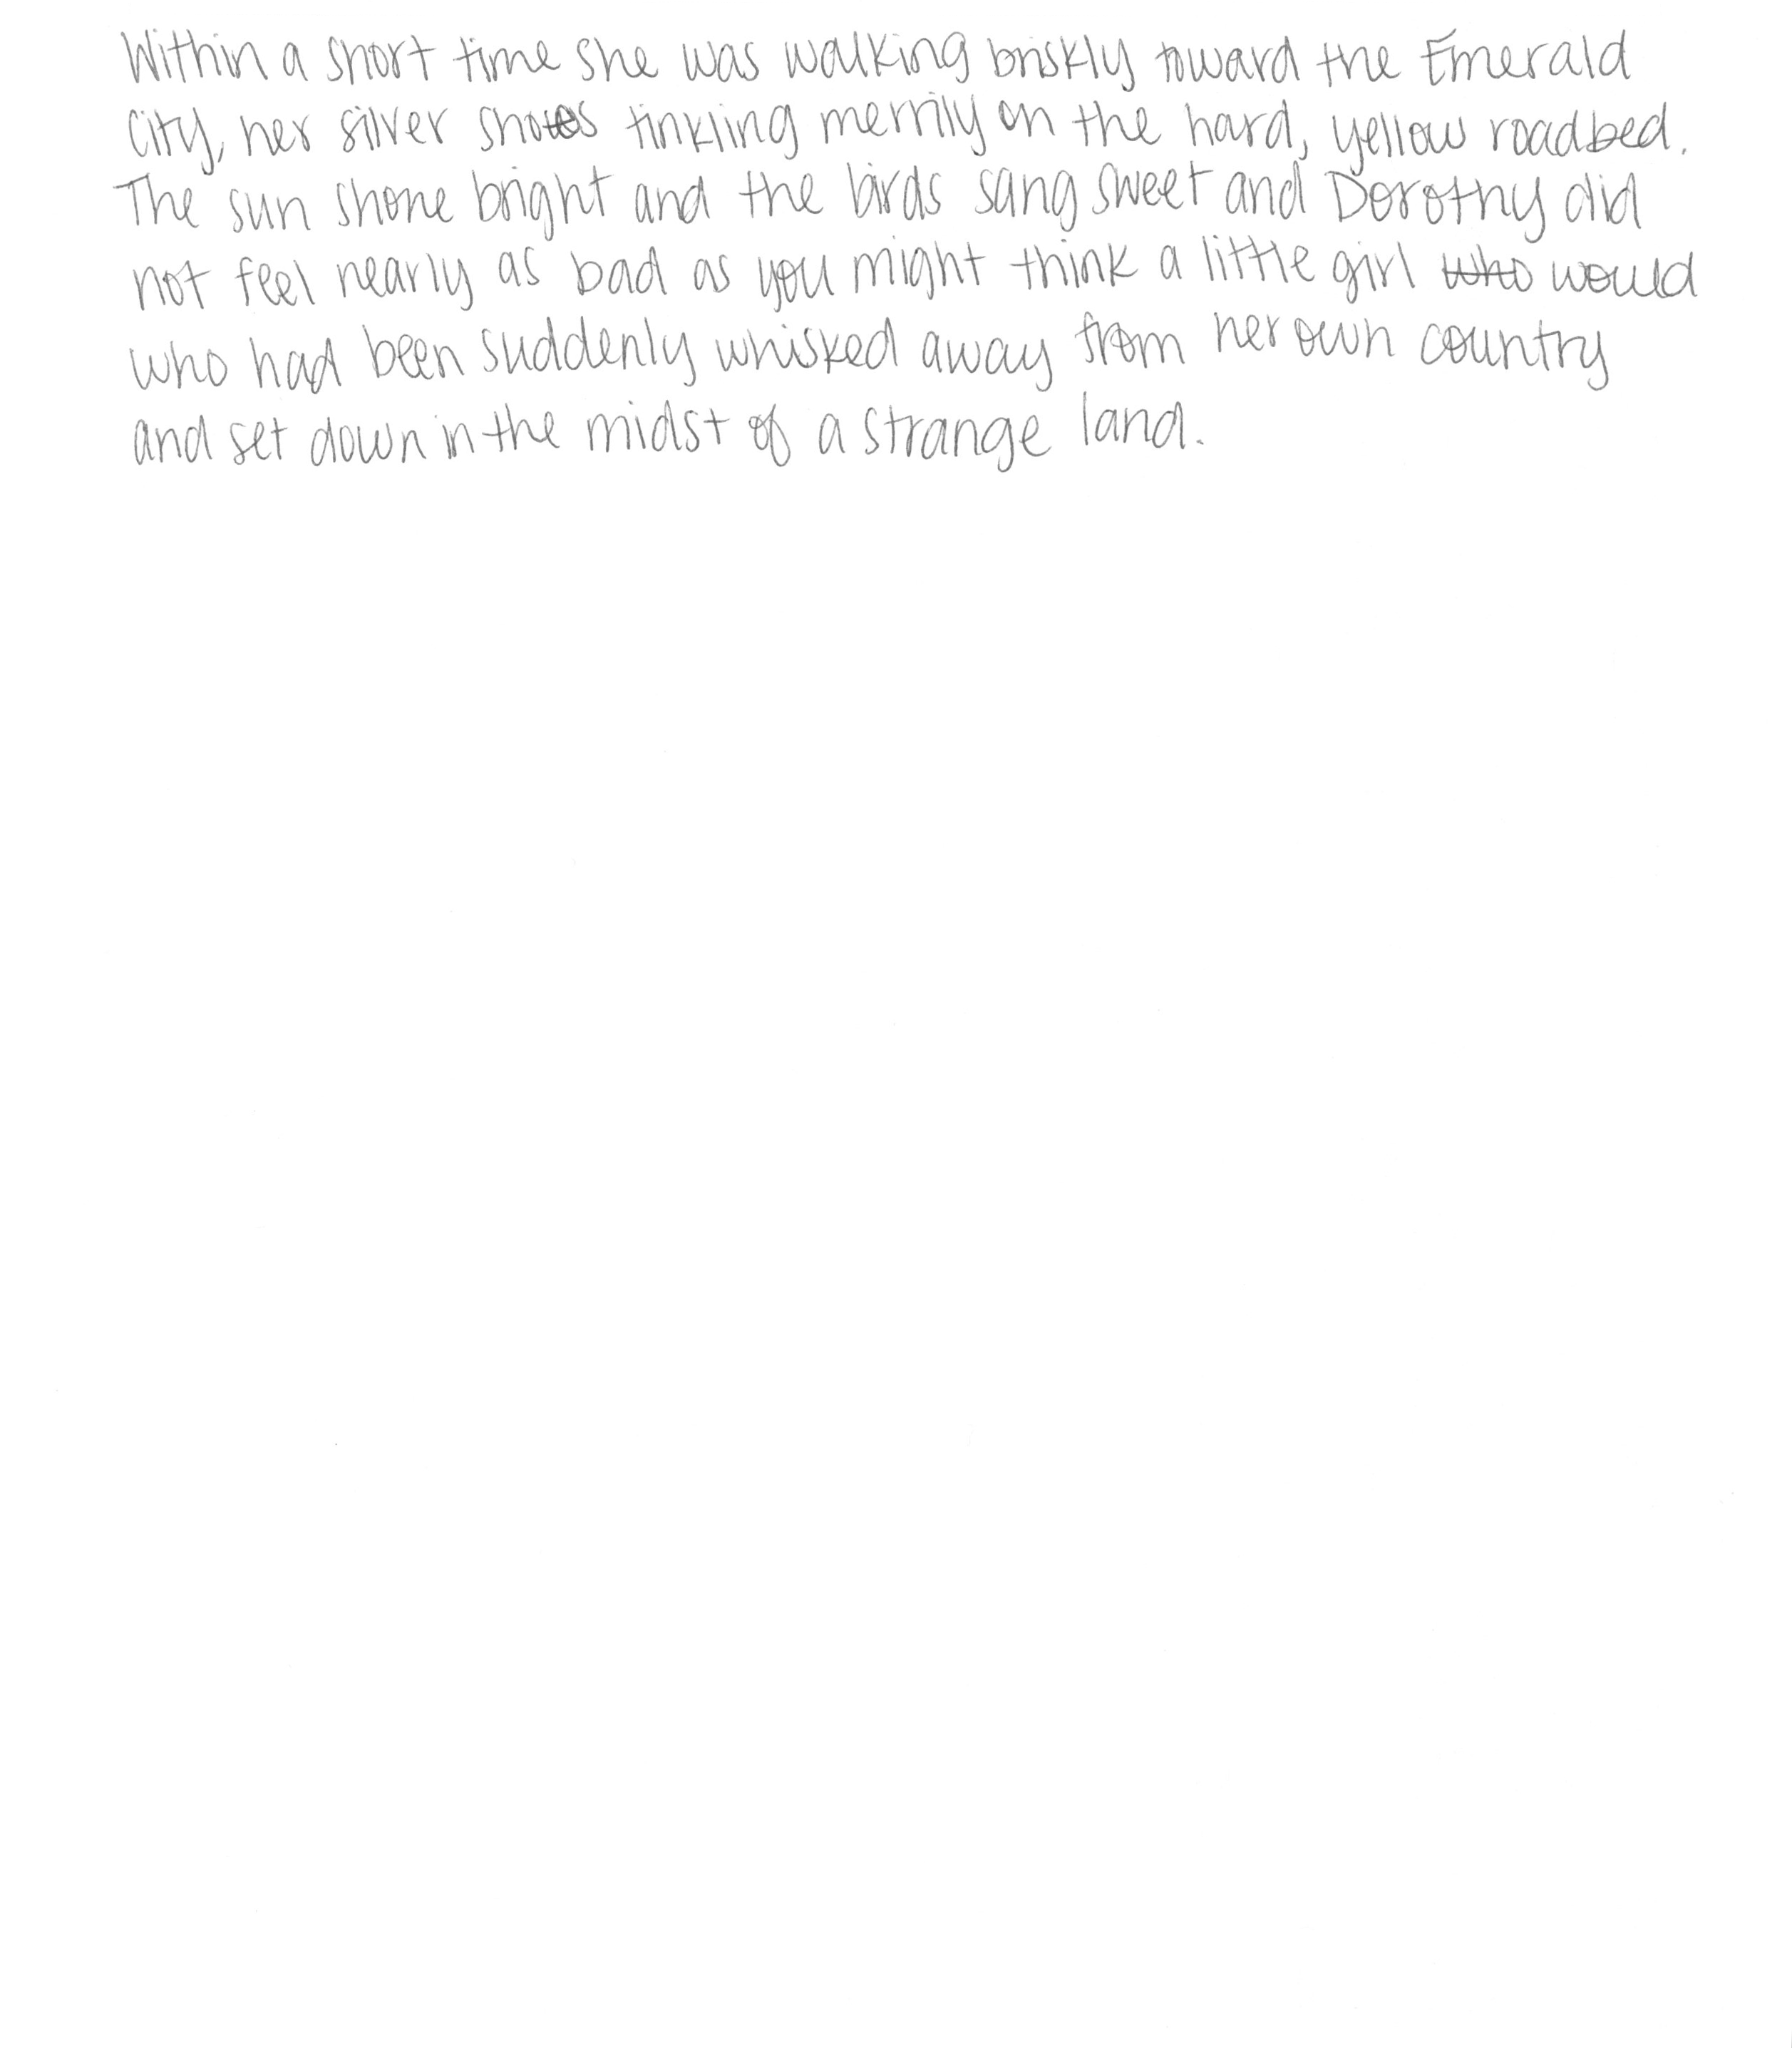 Within a short time she was walking briskly toward the Emerald
City, her silver shoes tinkling merrily on the hard, yellow roadbed.
The sun shone bright and the birds sang sweet and Dorothy did
not feel nearly as bad as you might think a little girl who would
who had been suddenly whisked away from her own country
and set down in the midst of a strange land.